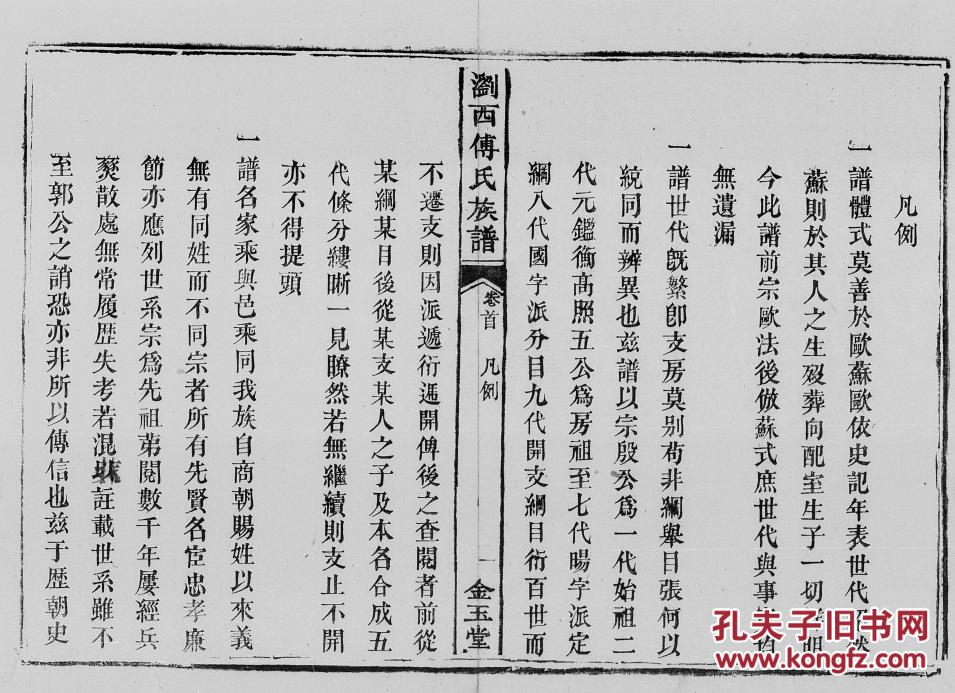 凡例
一譜體式莫善於歐蘇歐依史記年表世代
蘇則於其人之生歿葬向配室生子一切明
今此譜前宗歐法後倣蘇式庶世代與事
無遺漏
一譜世代旣繁卽支房莫别苟非綱舉目張何以
統同而辨異也玆譜以宗殷公爲一代始祖二
代元鑑衡高照五公爲房祖至七代暘字派定
綱八代國字派分目九代開支綱目衍百世而
瀏西傅氏族譜
卷首 凡例
一
金玉堂
不遷支則因派遞衍遞開俾後之查閱者前從
某綱某目後從某支某人之子及本各合成五
代條分縷晰一見瞭然若無繼續則支止不開
亦不得提頭
一譜名家乘與邑乘同我族自商朝賜姓以來義
無有同姓而不同宗者所有先賢名宦忠孝廉
節亦應列世系宗爲先祖第閱數千年屢經兵
燹散處無常履歴失考若混註載世系雖不
至郭公之誚恐亦非所以傳信也玆于歴朝史
孔夫子旧书网
www.kongfz.com